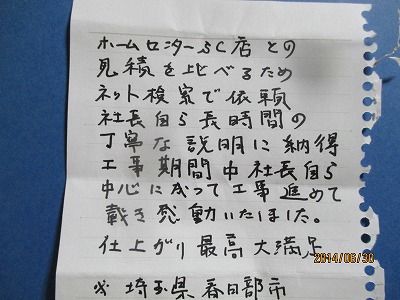 ホームセンターSC店との
見積を比べるため
ネット検索で依頼
社長自ら長時間の
丁寧な説明に納得
工事期間中社長自ら
中心になって工事進めて
戴き感動いたしました。
仕上がり最高大満足
2014/06/30
埼玉県春日部市